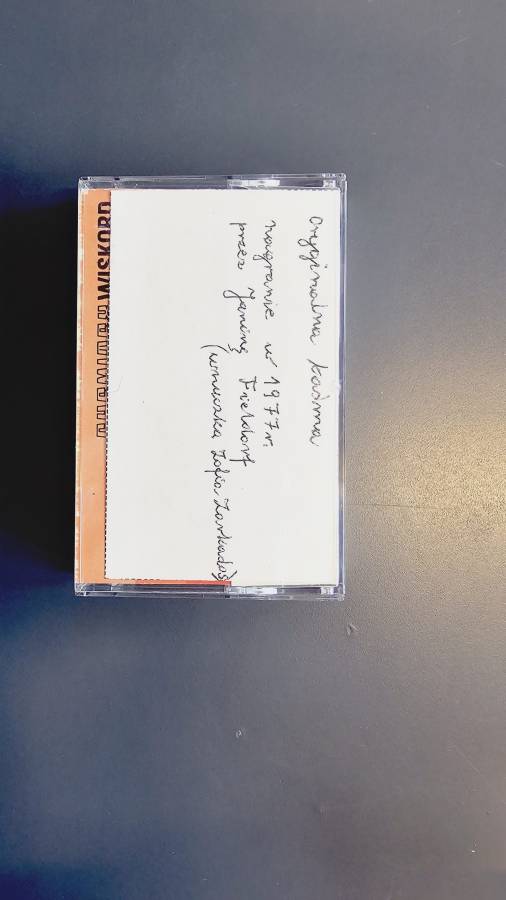 Oryginalna taśma
nagranie w 1977r.
przez Janinę Fieldorf
(wnuczka Zofia Zarkadas)
WISKORD